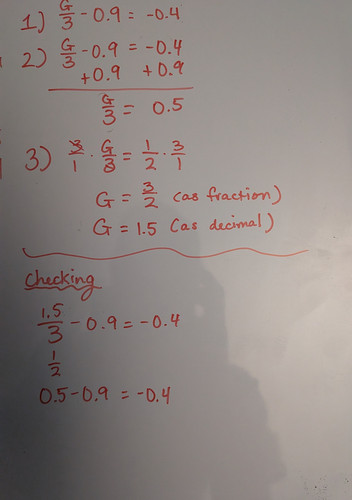 1) G/3 - 0.9 = -0.4
2) G/3 - 0.9 = -0.4
+0.9 +0.9
G/3 = 0.5
3) 3/1 · G/3 = 1/2 · 3/1
G = 3/2 (as fraction)
G = 1.5 (as decimal)
Checking
1.5/3 - 0.9 = -0.4
1/2
0.5 - 0.9 = -0.4